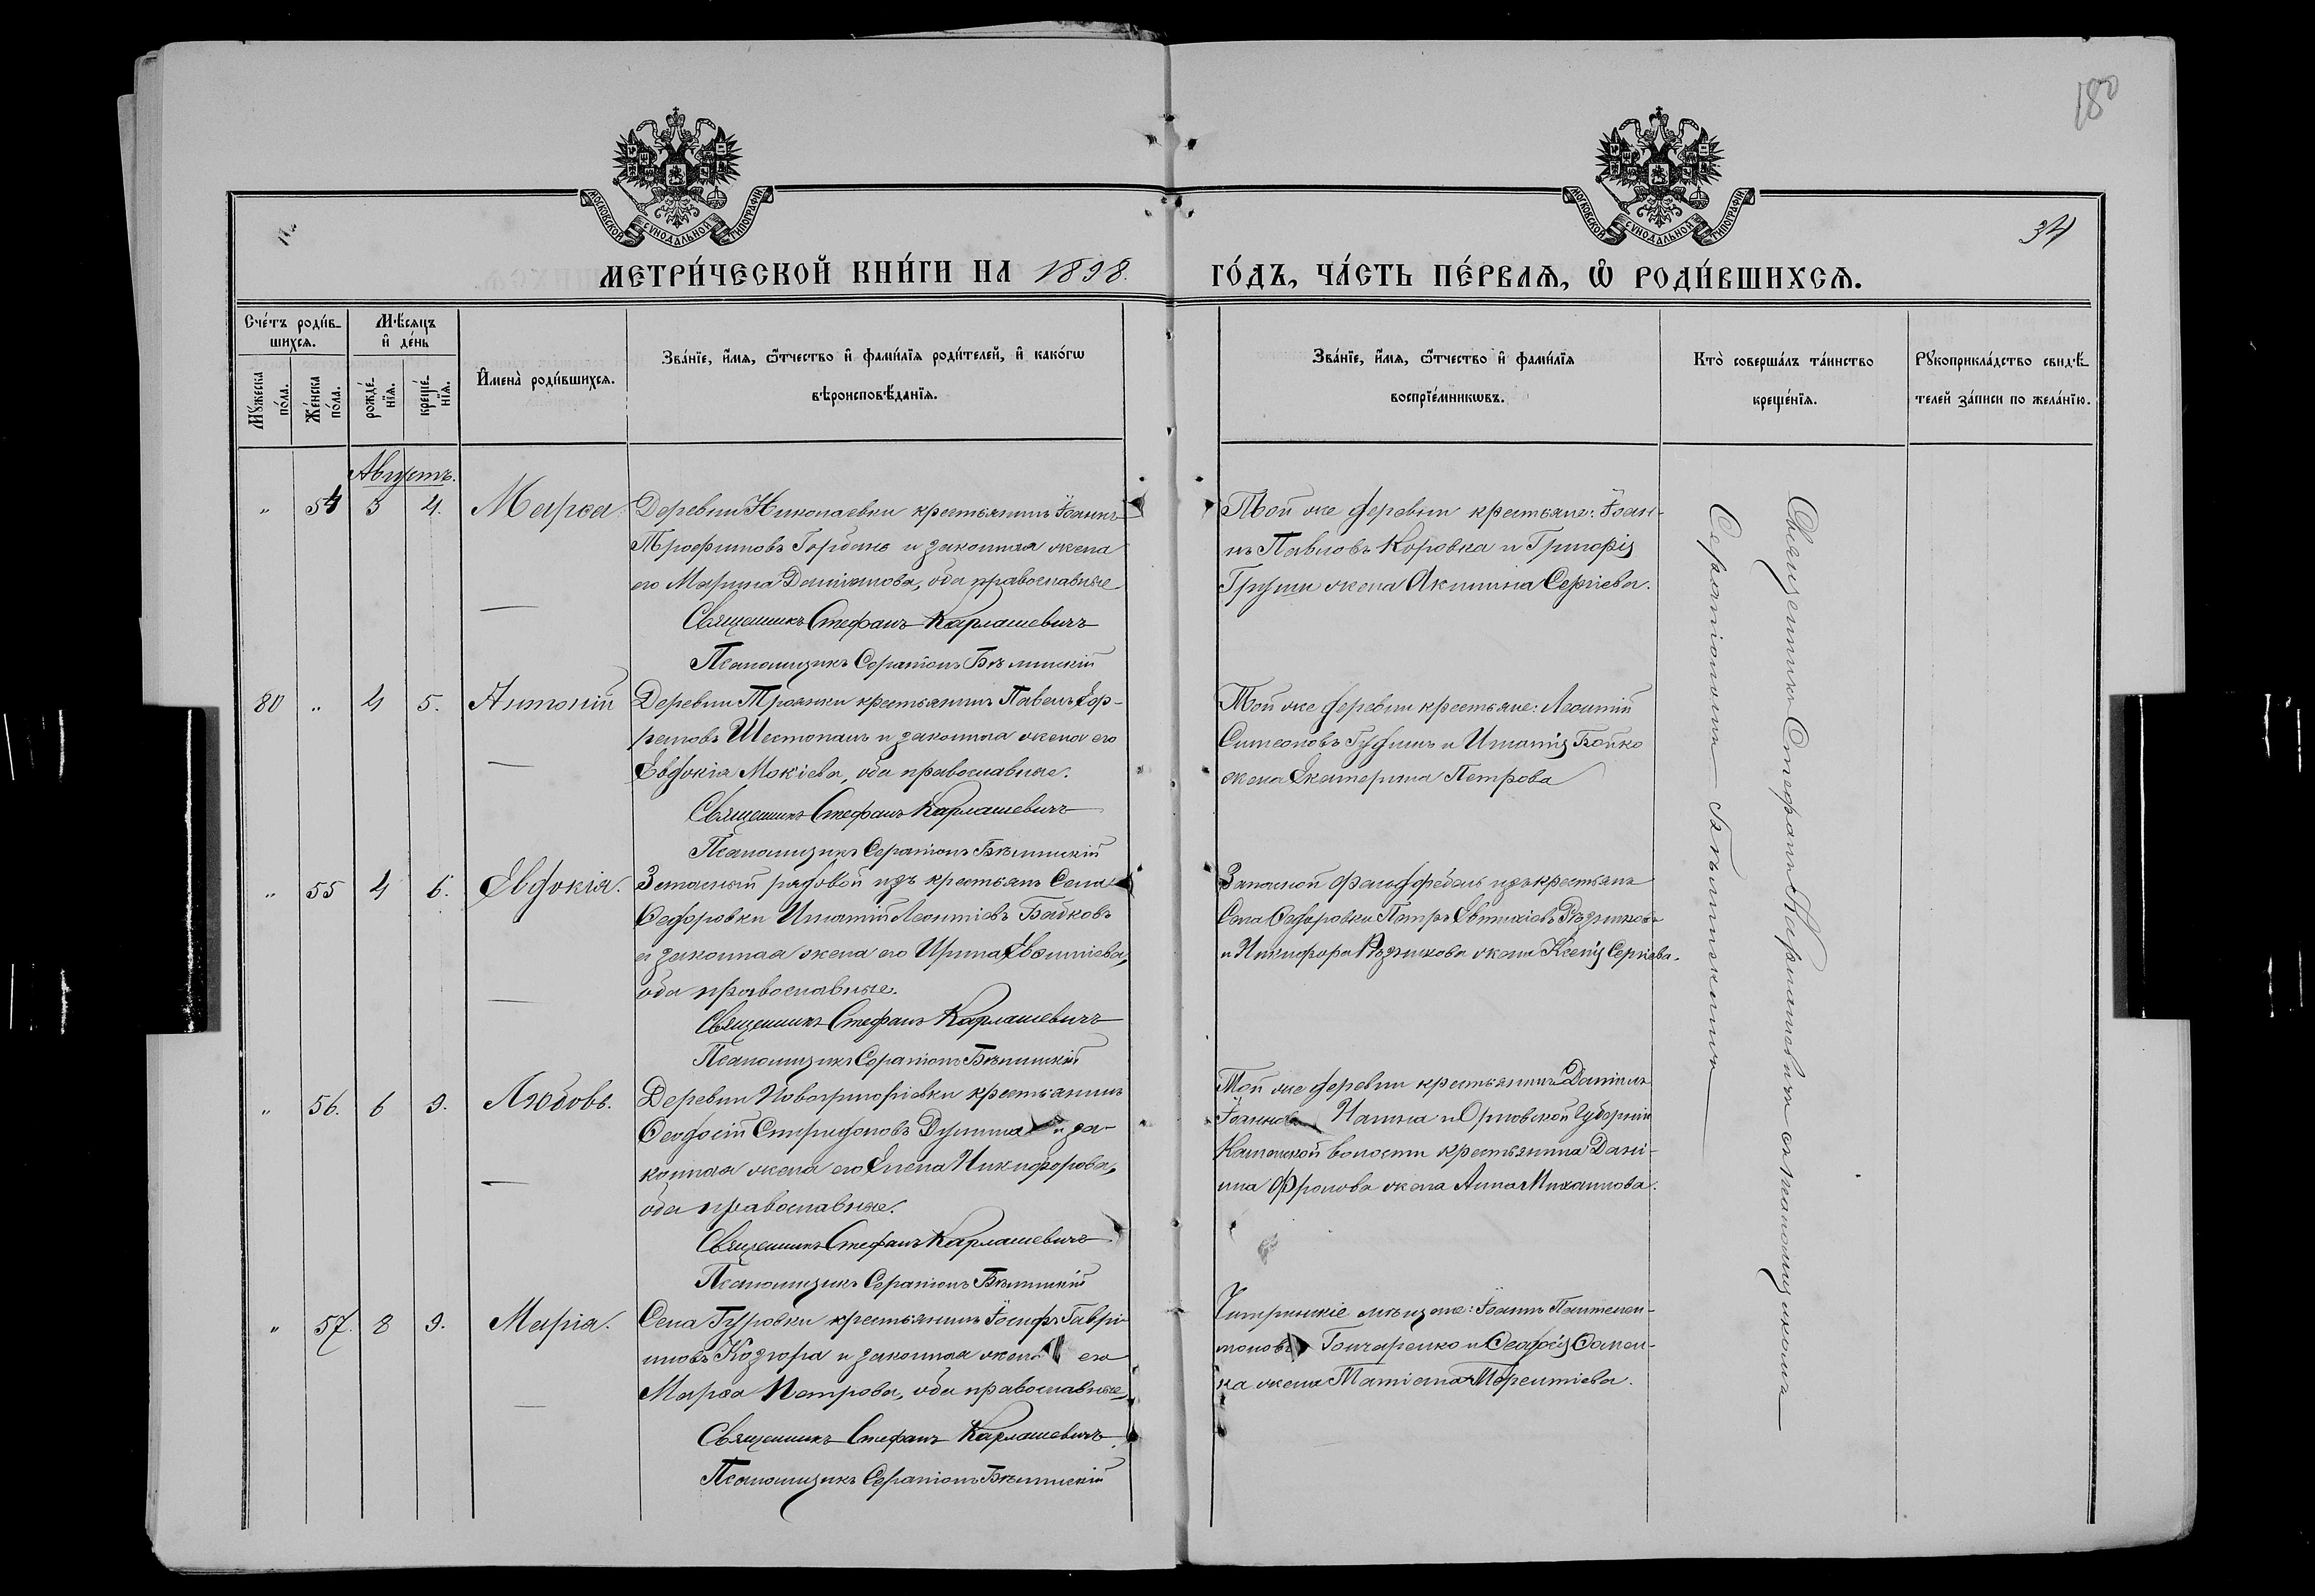 180
МОСКОВСКОЙ СѴНОДАЛЬНОЙ ТИПОГРАФІИ
МОСКОВСКОЙ СѴНОДАЛЬНОЙ ТИПОГРАФІИ
34
МЕТРИ́ЧЕСКОЙ КНИ́ГИ НА 1898.
ГО́ДЪ, ЧА́СТЬ ПЕ́РВАѦ, Ѡ҆ РОДИ́ВШИХСѦ.
Сче́тъ роди́в-
шихсѧ.
Мѣ́сѧцъ
и҆ де́нь
Мꙋ́жеска
по́ла.
Же́нска
по́ла.
рожде́-
нїѧ.
креще́-
нїѧ.
И҆мена̀ роди́вшихсѧ.
Зва́нїе, и҆́мѧ, ѻ҆́тчество и҆ фами́лїѧ роди́телей, и҆ како́гѡ
вѣроисповѣ́данїѧ.
Зва́нїе, и҆́мѧ, ѻ҆́тчество и҆ фами́лїѧ
воспрїе́мникѡвъ.
Кто̀ соверша́лъ та́инство
креще́нїѧ.
Рꙋкоприкла́дство свидѣ́-
телей за́писи по жела́нїю.
Августъ.
" 54 3 4. Марѳа.
Деревни Николаевки крестьянинъ Іоаннъ
Трофимовъ Горбань и законная жена
его Марина Даміанова, оба православные
Священникъ Стефанъ Карлашевичъ
Псаломщикъ Серапіонъ Бѣлинскій
Той же деревни крестьяне: Іоан-
нъ Павловъ Коровка и Григорія
Груши жена Акилина Сергіева.
80 " 4 5. Антоній
Деревни Троянки крестьянинъ Павелъ
Шестопалъ и законная жена его
Евдокія Мокіева, оба православные.
Священникъ Стефанъ Карлашевичъ
Псаломщикъ Серапіонъ Бѣлинскій
Той же деревни крестьяне: Леонтій
Симеоновъ и Игнатія Бойко
жена Екатерина Петрова
" 55 4 6. Евдокія.
Запасный рядовой изъ крестьянъ Села
Ѳедоровки Игнатій Леонтіевъ Бабковъ
и законная жена его Ирина Евѳиміева,
оба православные.
Священникъ Стефанъ Карлашевичъ
Псаломщикъ Серапіонъ Бѣлинскій
Запасной фельдфебель изъ крестьянъ
Села Ѳедоровки Петръ Евтихіевъ Рѣзниковъ
и Никифора Рѣзникова жена Ксенія Сергіева.
" 56. 6 9. Любовь.
Деревни Новогригоріевки крестьянинъ
Ѳеодосій Спиридоновъ и за-
конная жена его Елена Никифорова,
оба православные.
Священникъ Стефанъ Карлашевичъ
Псаломщикъ Серапіонъ Бѣлинскій
Той же деревни крестьянинъ Даніилъ
Іоанновъ и Орловской Губерніи
Каменской волости крестьянина Дані-
ила Фролова жена Анна Михаилова.
" 57. 8 9. Марія.
Села Гуровки крестьянинъ Іосифъ Гаврі-
иловъ Козюра и законная жена его
Марѳа Петрова, оба православные.
Священникъ Стефанъ Карлашевичъ
Псаломщикъ Серапіонъ Бѣлинскій
Чигринскіе мѣщане: Іоаннъ Пантелеи-
моновъ Гончаренко и Ѳеодосія
жена Татіана Терентіева.
Священникъ Стефанъ Карлашевичъ съ псаломщикомъ
Серапіономъ Бѣлинскимъ